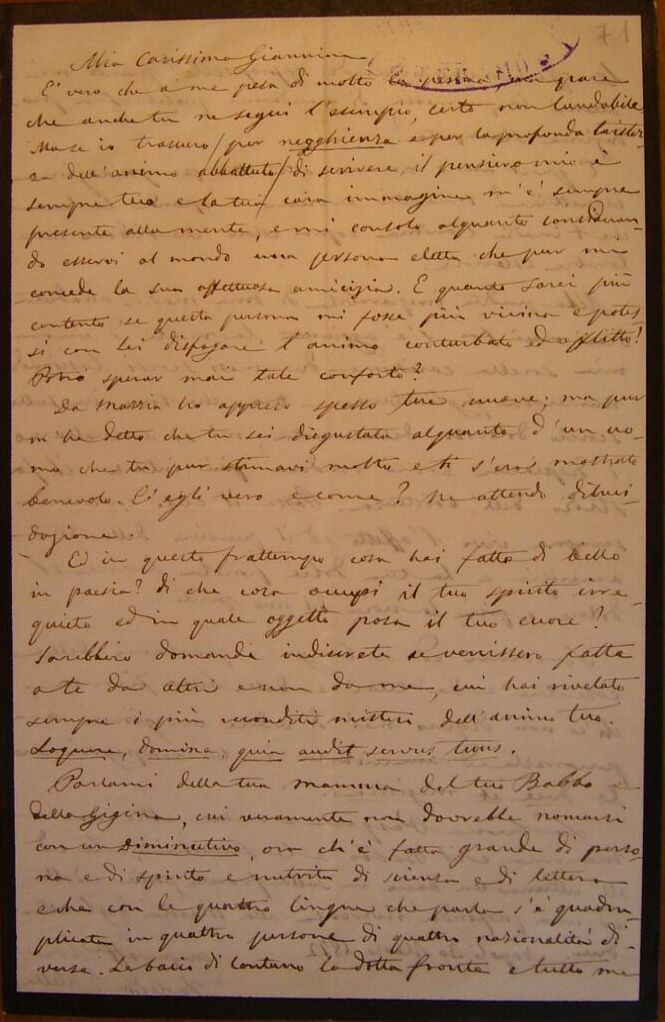 71
Mia Carissima Giannina,
E' vero che a me pesa di molto la penna, ma pare
che anche tu ne segui l'esempio, certo non laudabile
Ma se io trascuro/per negghienza e per la profonda tristez-
za dell'animo abbattuto/di scrivere, il pensiero mio è
sempre teco e la tua cara immagine m'è sempre
presente alla mente, e mi consolo alquanto consideran-
do esservi al mondo una persona eletta che pur mi
concede la sua affettuosa amicizia. E quanto sarei più
contento se questa persona mi fosse più vicina e potes
si con lei disfogare l'animo conturbato ed afflitto!
Potrò sperar mai tale conforto?
Da Massia ho appreso spesso tue nuove; ma pur
m'ha detto che tu sei disgustata alquanto d'un uo-
mo che tu pur stimavi molto e ti s'era mostrato
benevolo. C'è egli vero e come? Ne attendo diluci-
dazione.
Ed in questo frattempo cosa hai fatto di bello
in poesia? di che cosa occupi il tuo spirito irre-
quieto ed in quale oggetto posa il tuo cuore?
Sarebbero domande indiscrete se venissero fatte
a te da altri e non da me, cui hai rivelato
sempre i più reconditi misteri dell'animo tuo.
Loquere, domina, quia audit servus tuus.
Parlami della tua mamma del tuo Babbo e
della Gigina, cui veramente non dovrebbe nomarsi
con un diminutivo, ora ch'è fatta grande di perso-
na e di spirito e nutrita di scienza e di lettere
e che con le quattro lingue che parla s'è quadru-
plicata in quattro persone di quattro nazionalità di-
verse. Le bacio di lontano la dotta fronte e tutto me